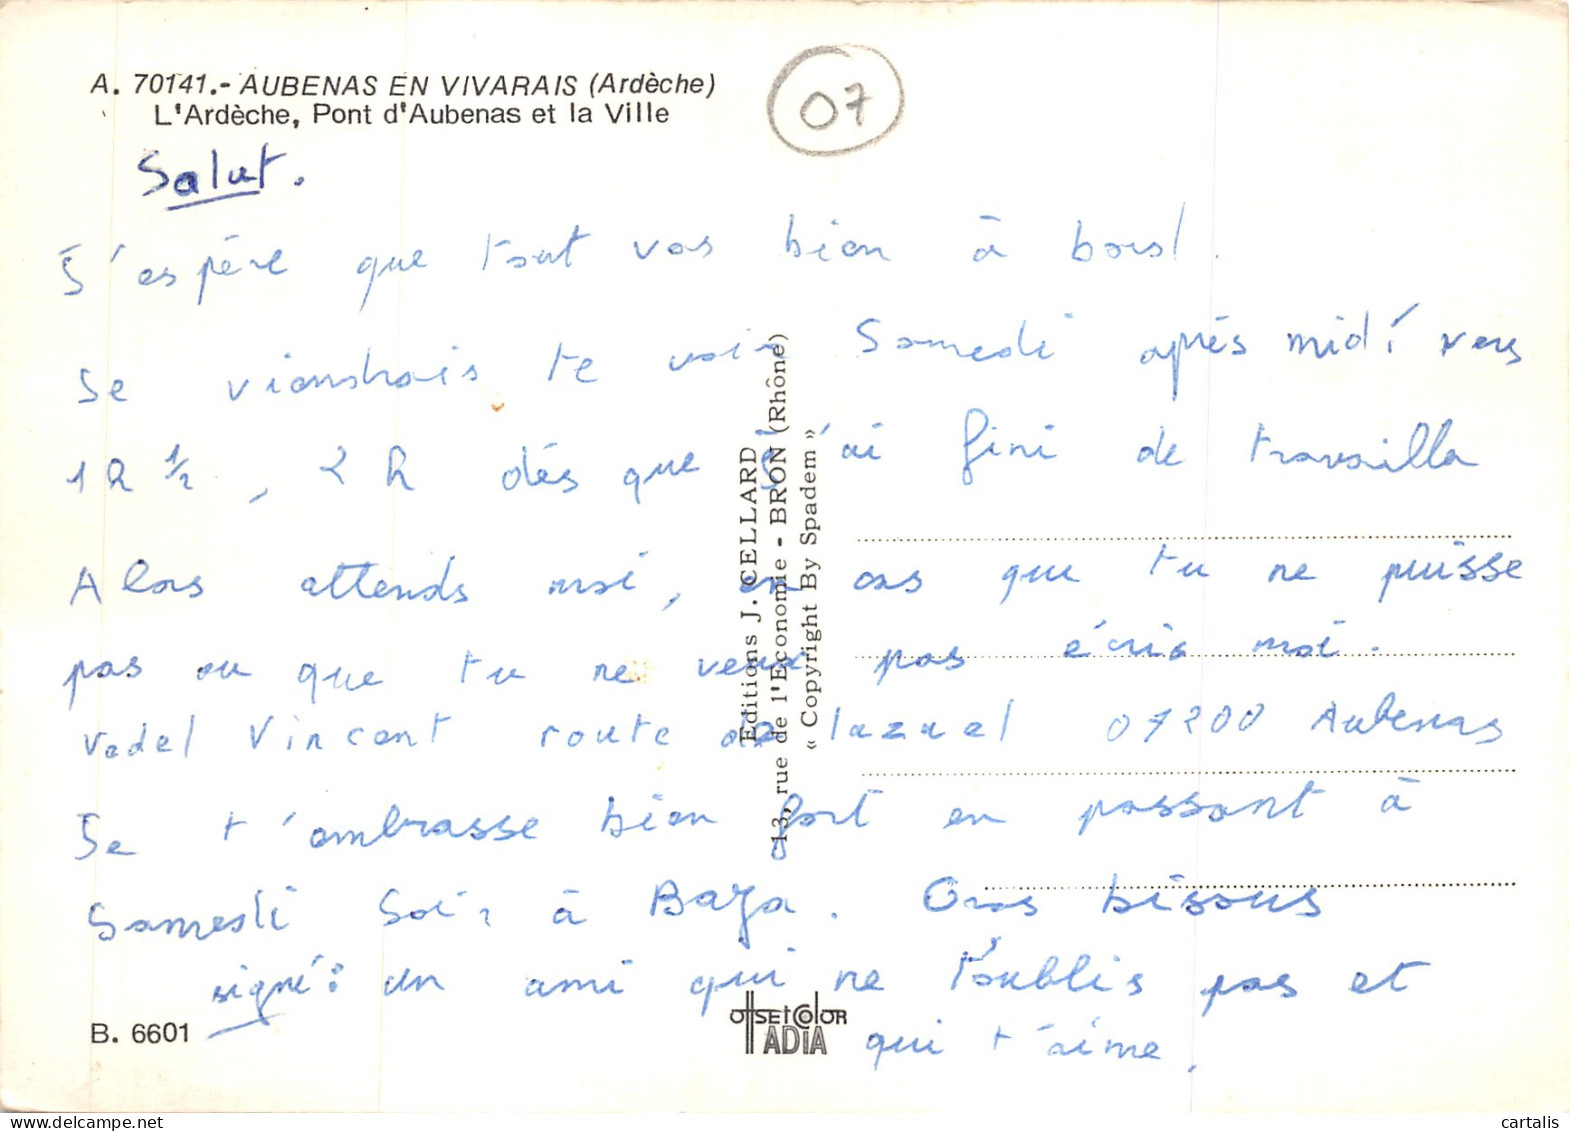 A. 70141.- AUBENAS EN VIVARAIS (Ardèche)
L'Ardèche, Pont d'Aubenas et la Ville
07
Salut.
J'espère que tout vas bien à bord.
Je viendrais te voir Samedi après midi vers
1 h ½, 2 h dés que j'ai fini de travailla
Alors attends moi, en cas que tu ne puisse
pas ou que tu ne veux pas écris moi.
Vedel Vincent route de lazuel 07200 Aubenas
Je t'embrasse bien fort en passant à
Samedi Soir à Baza. Gros bissous
signé: un ami qui ne t'oublis pas et
qui t'aime.
Editions J. CELLARD
13, rue de l'Economie - BRON (Rhône)
« Copyright By Spadem »
B. 6601
OffSEt COlOR
ADIA
cartalis